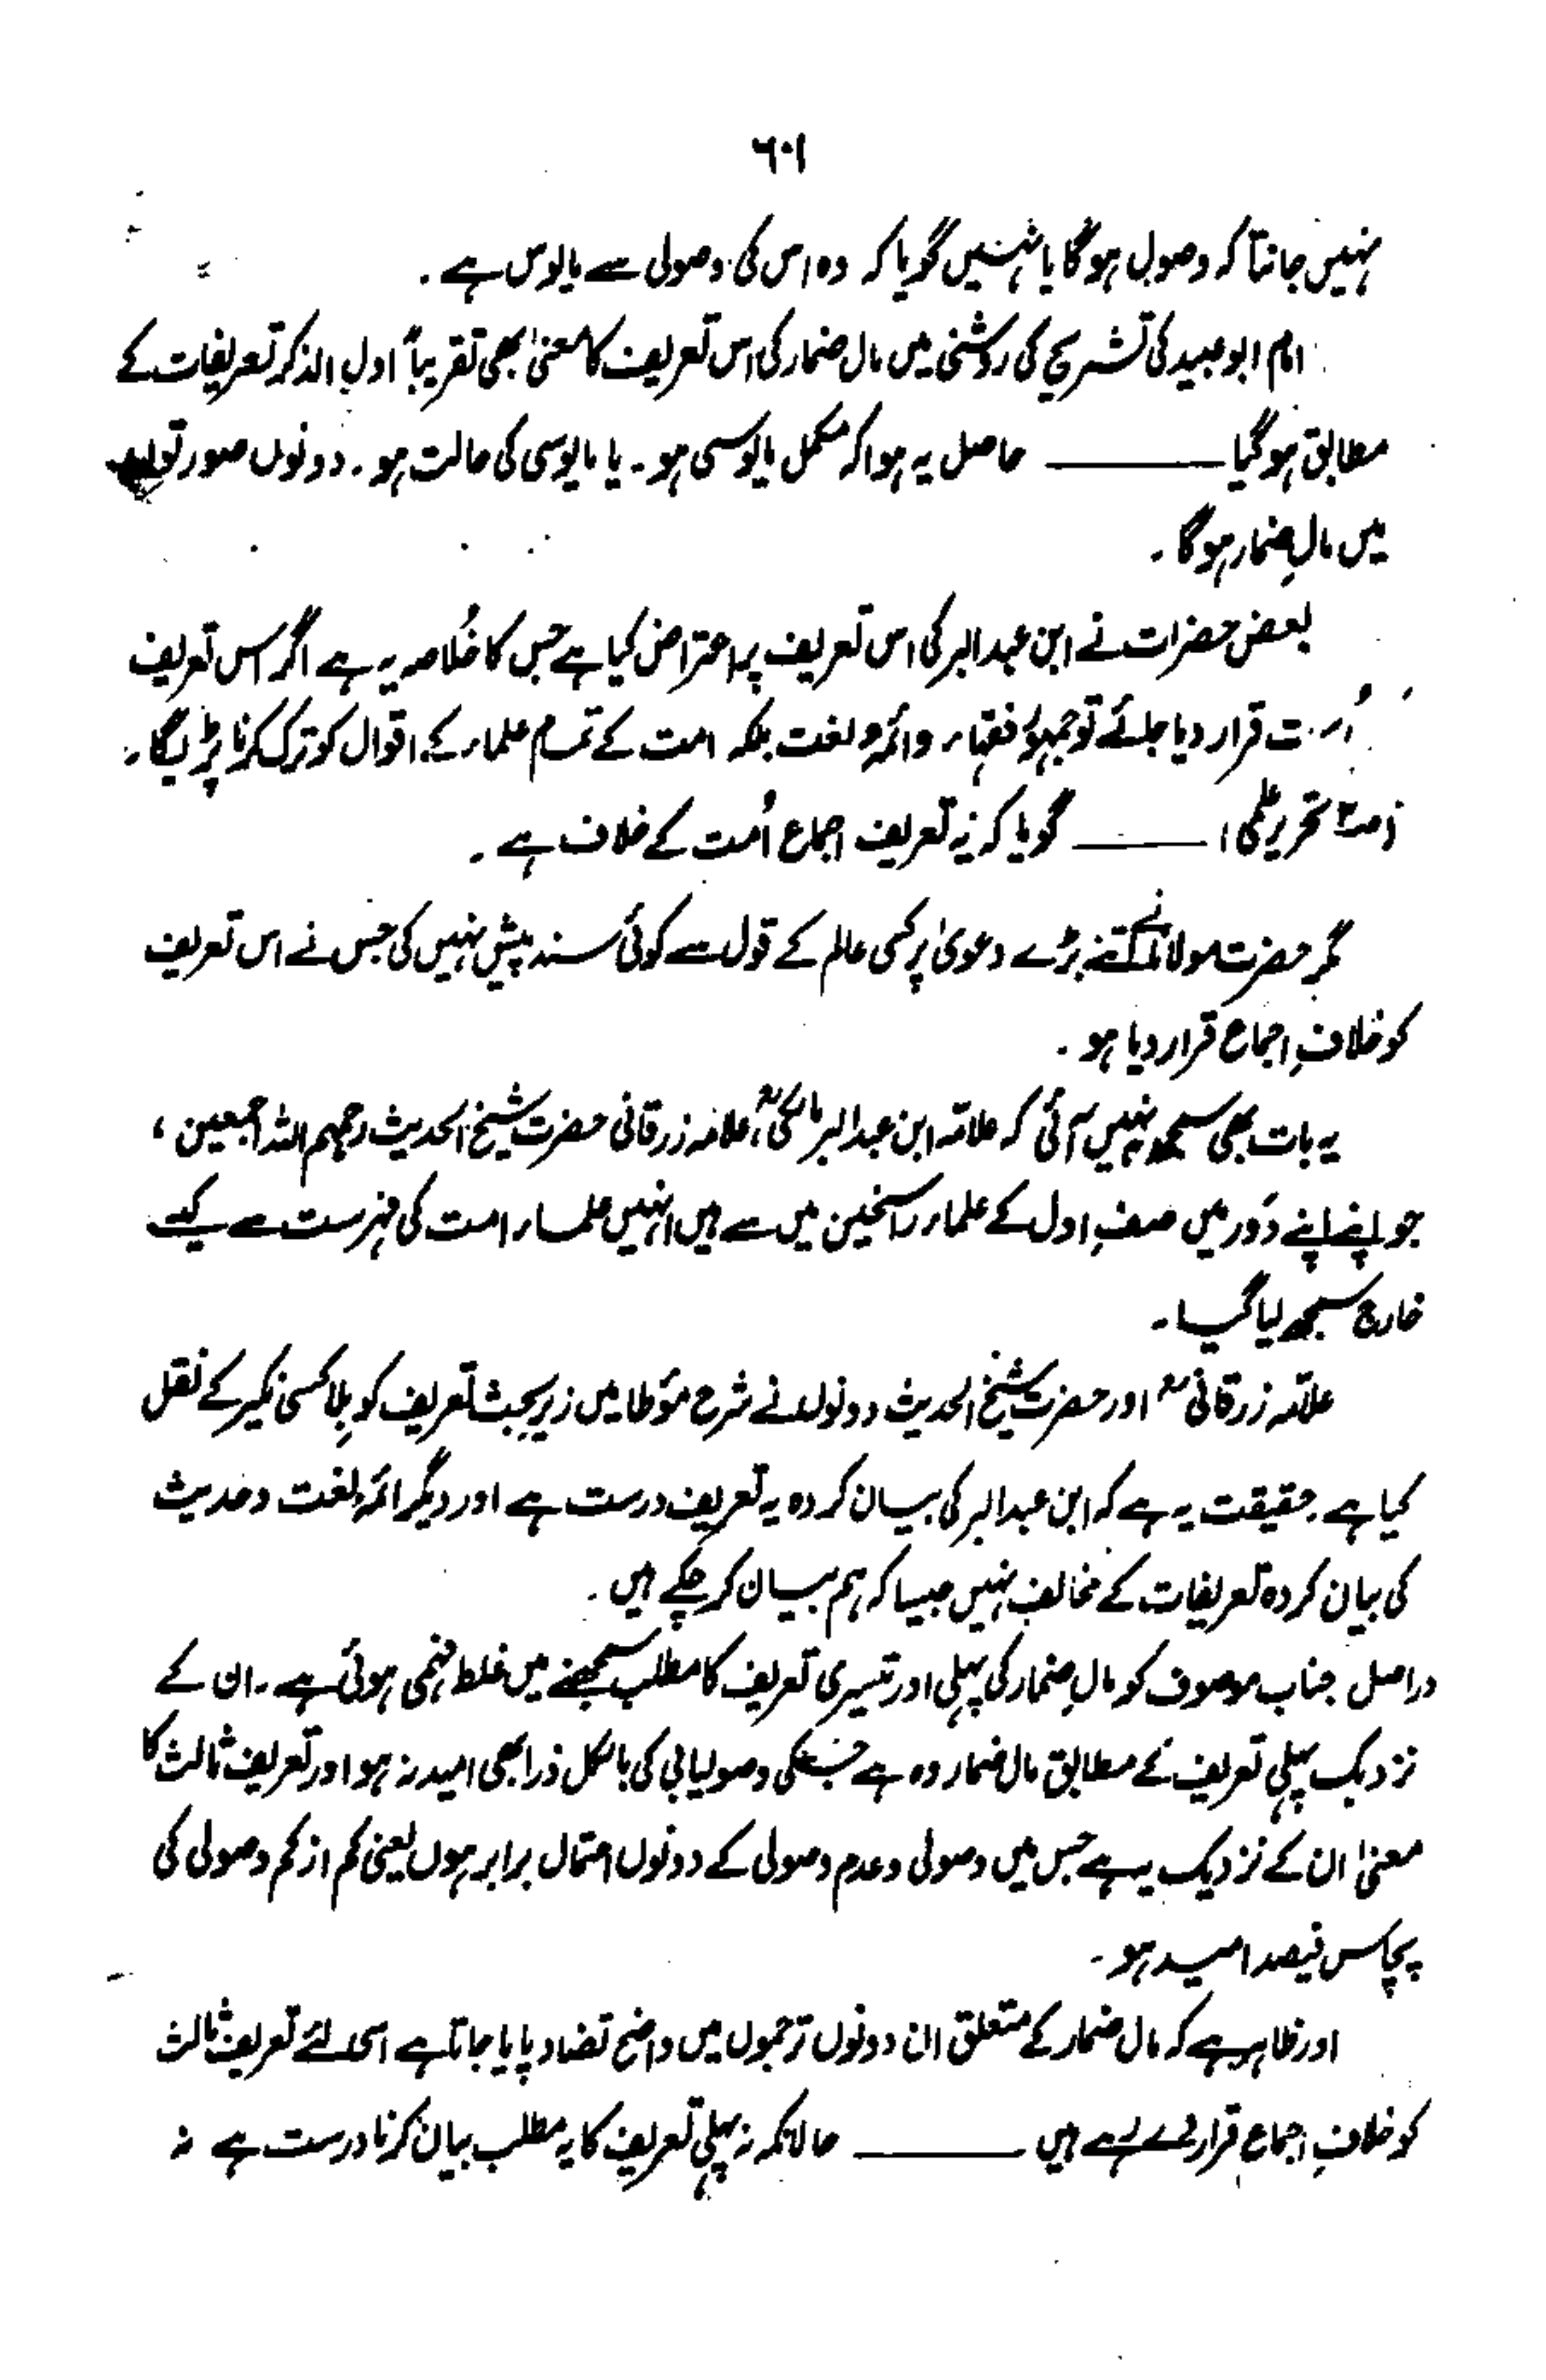 ٦٠١
نہیں جانتا کہ وصول ہوگا یا نہیں گویا کہ وہ اس کی وصولی سے مایوس ہے ۔
امام ابو عبید کی تشریح کی روشنی میں مال ضمار کی اس تعریف کا معنیٰ بھی تقریباً اول الذکر تعریفات کے
مطابق ہوگیا ——— حاصل یہ ہوا کہ مکمل مایوسی ہو ۔ یا مایوسی کی حالت ہو ۔ دونوں صورتوں
میں مالِ ضمار ہوگا ۔
بعض حضرات نے ابن عبدالبر کی اس تعریف پر اعتراض کیا ہے جس کا خلاصہ یہ ہے اگر اس تعریف
قرار دیا جائے تو جمہور فقہاء وائمہ لغت بلکہ امت کے تمام علماء کے اقوال کو ترک کرنا پڑیگا ۔
تحریر ——— گویا کہ یہ تعریف اجماع اُمت کے خلاف ہے ۔
مگر حضرت مولانا نے بڑے دعویٰ پر کسی عالم کے قول سے کوئی سند پیش نہیں کی جس نے اس تعریف
کو خلافِ اجماع قرار دیا ہو ۔
یہ بات بھی سمجھ نہیں آئی کہ علامہ ابن عبدالبر مالکیؒ، علامہ زرقانی حضرت شیخ الحدیث رحمہم اللہ اجمعین ،
جو اپنے اپنے دَور میں صفِ اول کے علماء راسخین میں سے ہیں انہیں علماء امت کی فہرست سے کیسے
خارج سمجھ لیا گیا ۔
علامہ زرقانیؒ اور حضرت شیخ الحدیث دونوں نے شرح مؤطا میں زیر بحث تعریف کو بِلا کسی نکیر کے نقل
کیا ہے ۔ حقیقت یہ ہے کہ ابن عبدالبر کی بیان کردہ یہ تعریف درست ہے اور دیگر ائمہ لغت و حدیث
کی بیان کردہ تعریفات کے مخالف نہیں جیسا کہ ہم بیان کر چکے ہیں ۔
دراصل جناب موصوف کو مالِ ضمار کی پہلی اور تیسری تعریف کا مطلب سمجھنے میں غلط فہمی ہوئی ہے ۔ ان کے
نزدیک پہلی تعریف کے مطابق مال ضمار وہ ہے جس کی وصولیابی کی بالکل ذرا بھی امید نہ ہو اور تعریف ثالث کا
معنیٰ ان کے نزدیک یہ ہے جس میں وصولی و عدم وصولی کے دونوں احتمال برابر ہوں یعنی کم از کم وصولی کی
پچاس فیصد امید ہو ۔
اور ظاہر ہے کہ مال ضمار کے متعلق ان دونوں ترجموں میں واضح تضاد پایا جاتا ہے اسی لئے تعریف ثالث
کو خلافِ اجماع قرار دے رہے ہیں ——— حالانکہ نہ پہلی تعریف کا یہ مطلب بیان کرنا درست ہے نہ